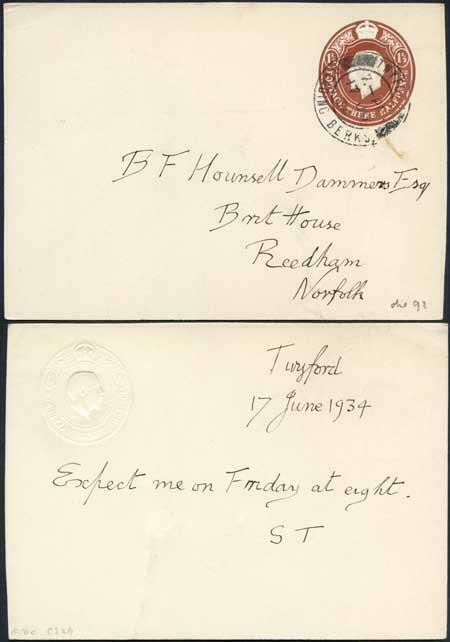 1½ᴰ 1½ᴰ
POSTAGE THREE HALFPENCE
READING BERKS.
B F Hounsell Dammers Esq
Brit House
Reedham
Norfolk
Twyford
17 June 1934
Expect me on Friday at eight.
S T